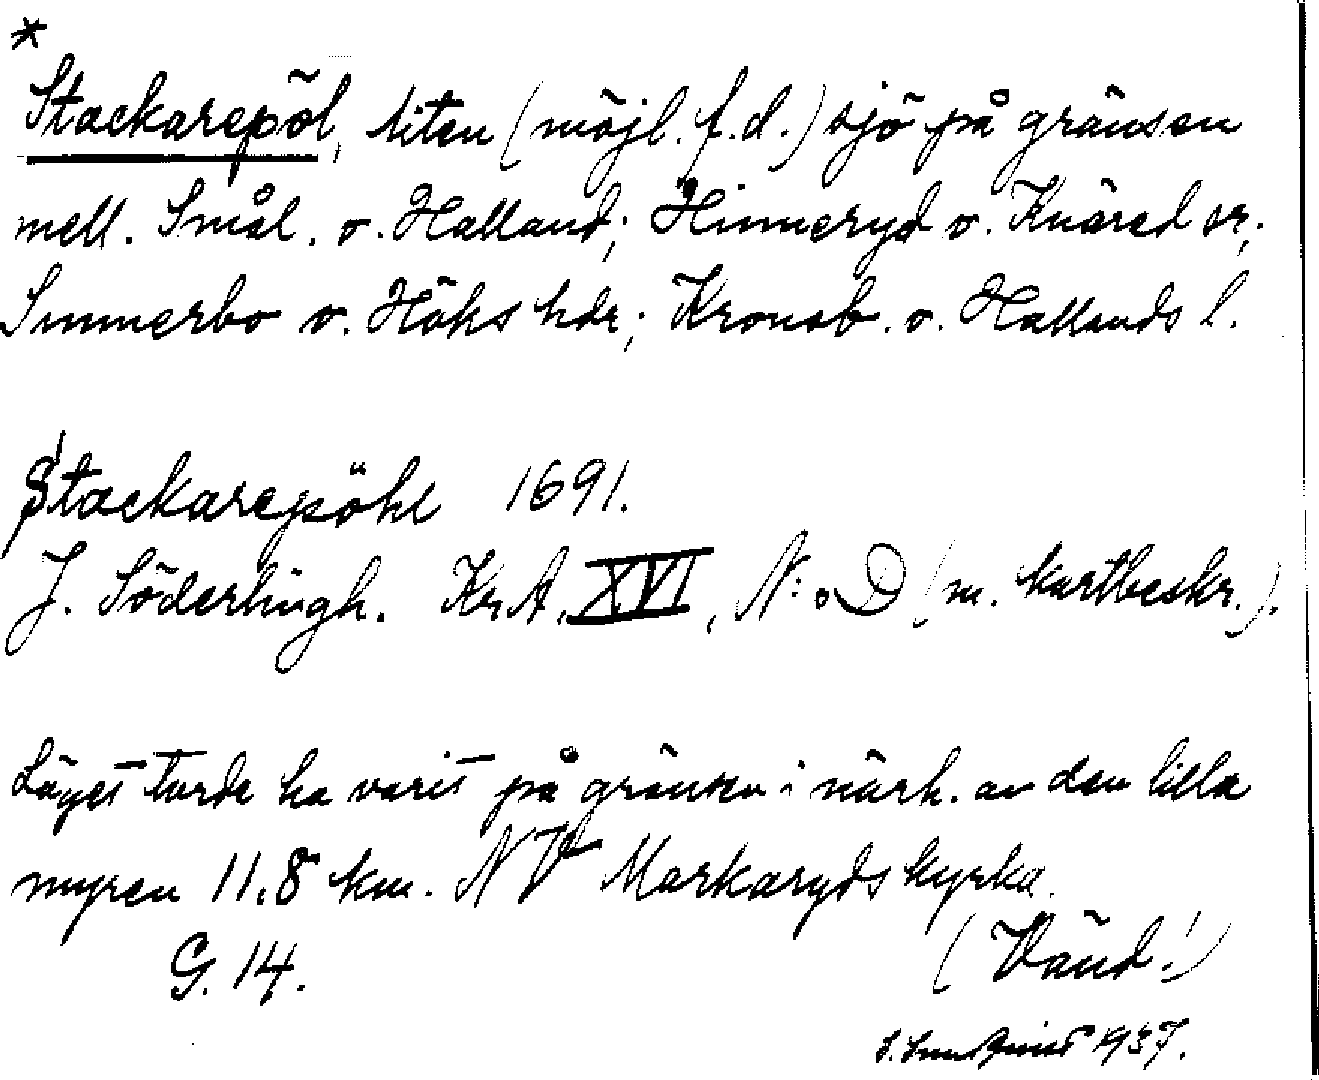 *
Stackarepöl, liten (möjl. f.d.) sjö på gränsen
mell. Smål. o. Halland; Hinneryd o. Knäred sr;
Sunnerbo o. Höks hdr; Kronob. o. Hallands l.
Stackarepöhl 1691.
J. Söderlingh. Kr.A. XVI, N:o D (m. kartbeskr.).
Läget torde ha varit på gränsen i närh. av den lilla
myren 11.8 km. NV Markaryds kyrka.
G. 14.
(Vänd!)
1937.